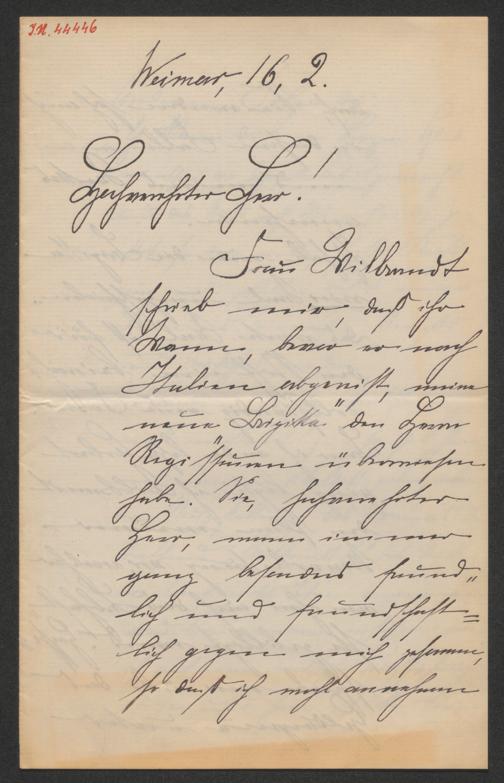 J.N. 44446
Weimar, 16, 2.
Hochverehrter Herr!
Frau Wilbrandt
schrieb mir, daß ihr
Mann, bevor er nach
Italien abgereist, meine
neue "Brigitta" den Herrn
Regisseuren überwiesen
habe. Sie, hochverehrter
Herr, waren immer
ganz besonders freund„
lich und freundschaft=
lich gegen mich gesonnen,
so daß ich wohl annehmen